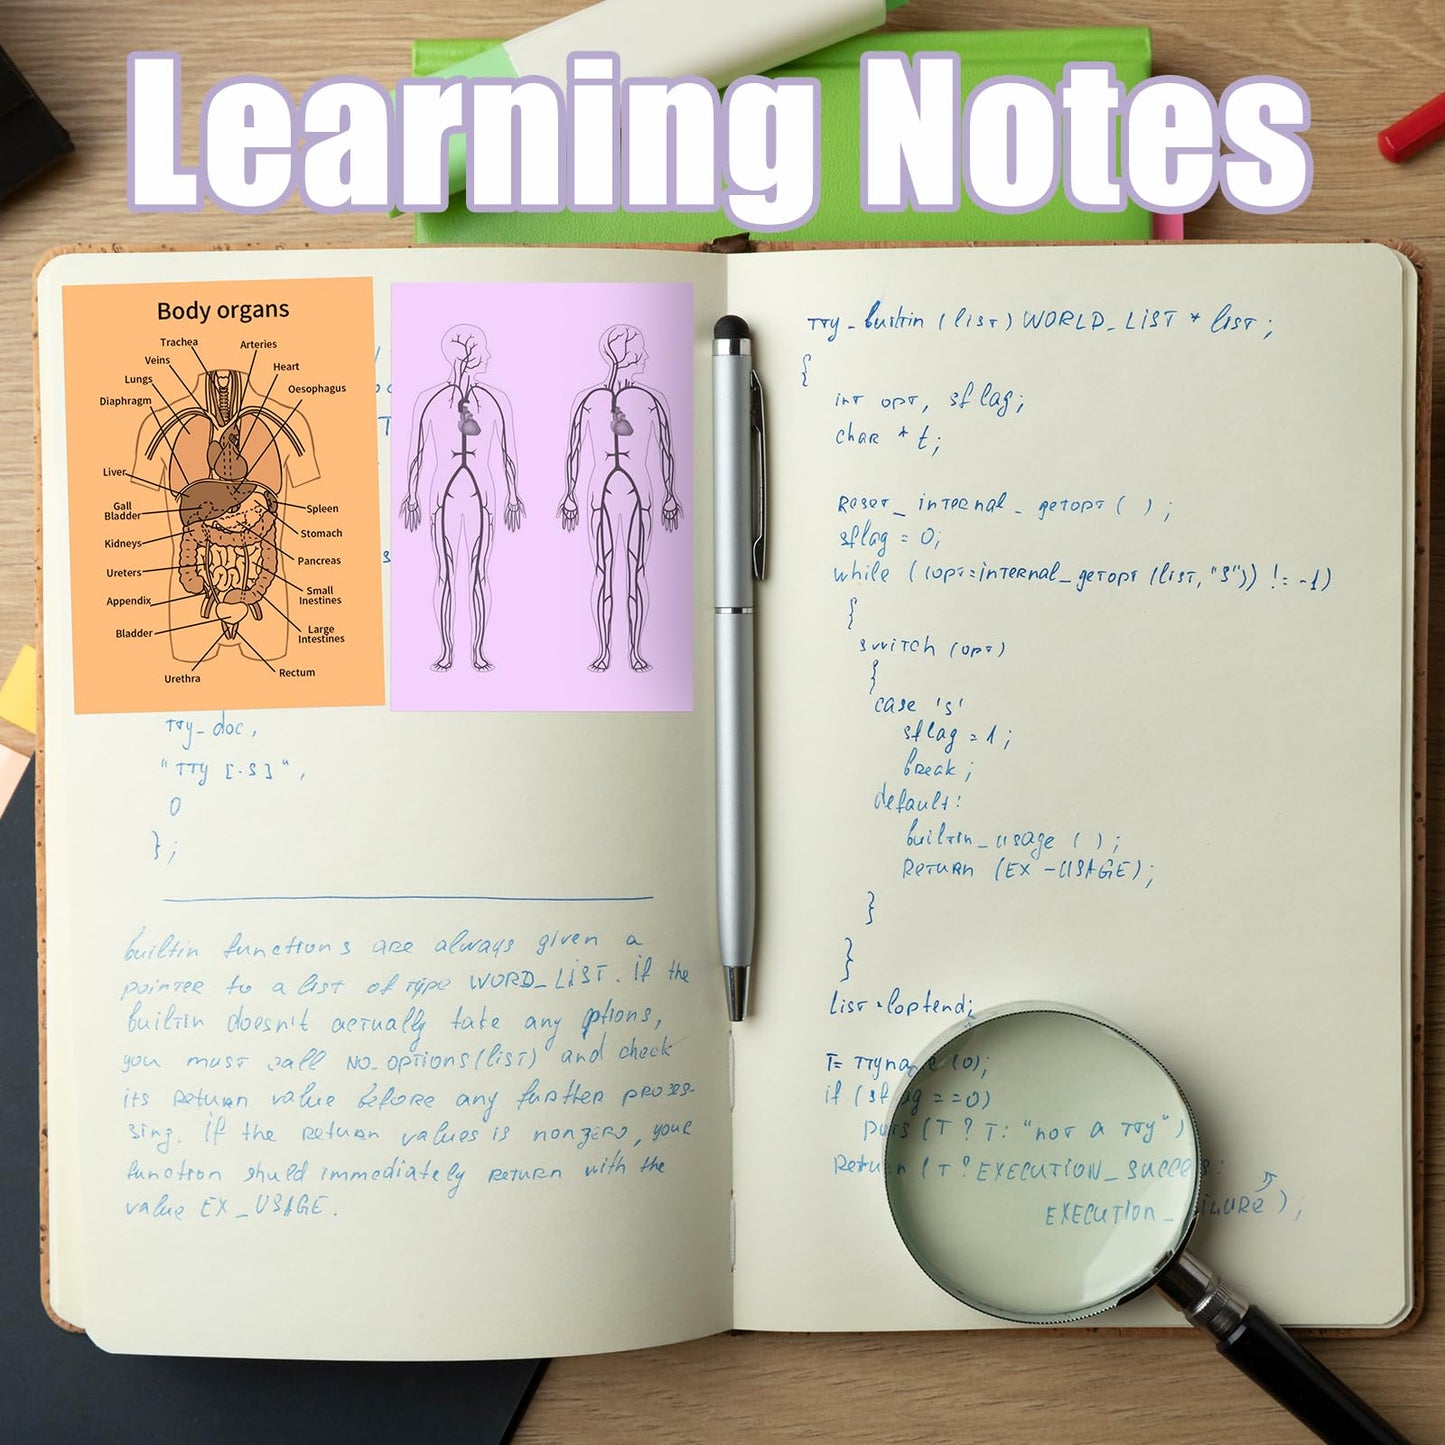 Learning Notes
Body organs
Trachea
Arteries
Veins
Heart
Lungs
Oesophagus
Diaphragm
Liver
Gall
Bladder
Spleen
Stomach
Kidneys
Pancreas
Ureters
Small
Inestines
Appendix
Large
Intestines
Bladder
Urethra
Rectum
tty_doc,
"TTY [-S]",
0
};
builtin functions are always given a
pointer to a list of type WORD_LIST. if the
builtin doesn't actually take any ptions,
you must call no_options(list) and check
its return value before any further proces-
sing. if the return values is nonzero, your
function should immediately return with the
value EX_USAGE.
tty_builtin (list) WORLD_LIST * list;
{
int opt, sflag;
char * t;
Reset_internal_getopt ( );
sflag = 0;
while ((opt=internal_getopt (list, "S")) != -1)
{
switch (opt)
{
case 's'
sflag = 1;
break;
default:
builtin_usage ( );
Return (EX-USAGE);
}
}
list = loptend;
T= ttyname (0);
if (sflag ==0)
puts (T ? T: "not a tty")
Return (T ? EXECUTION_SUCCESS:
EXECUTION_FAILURE);